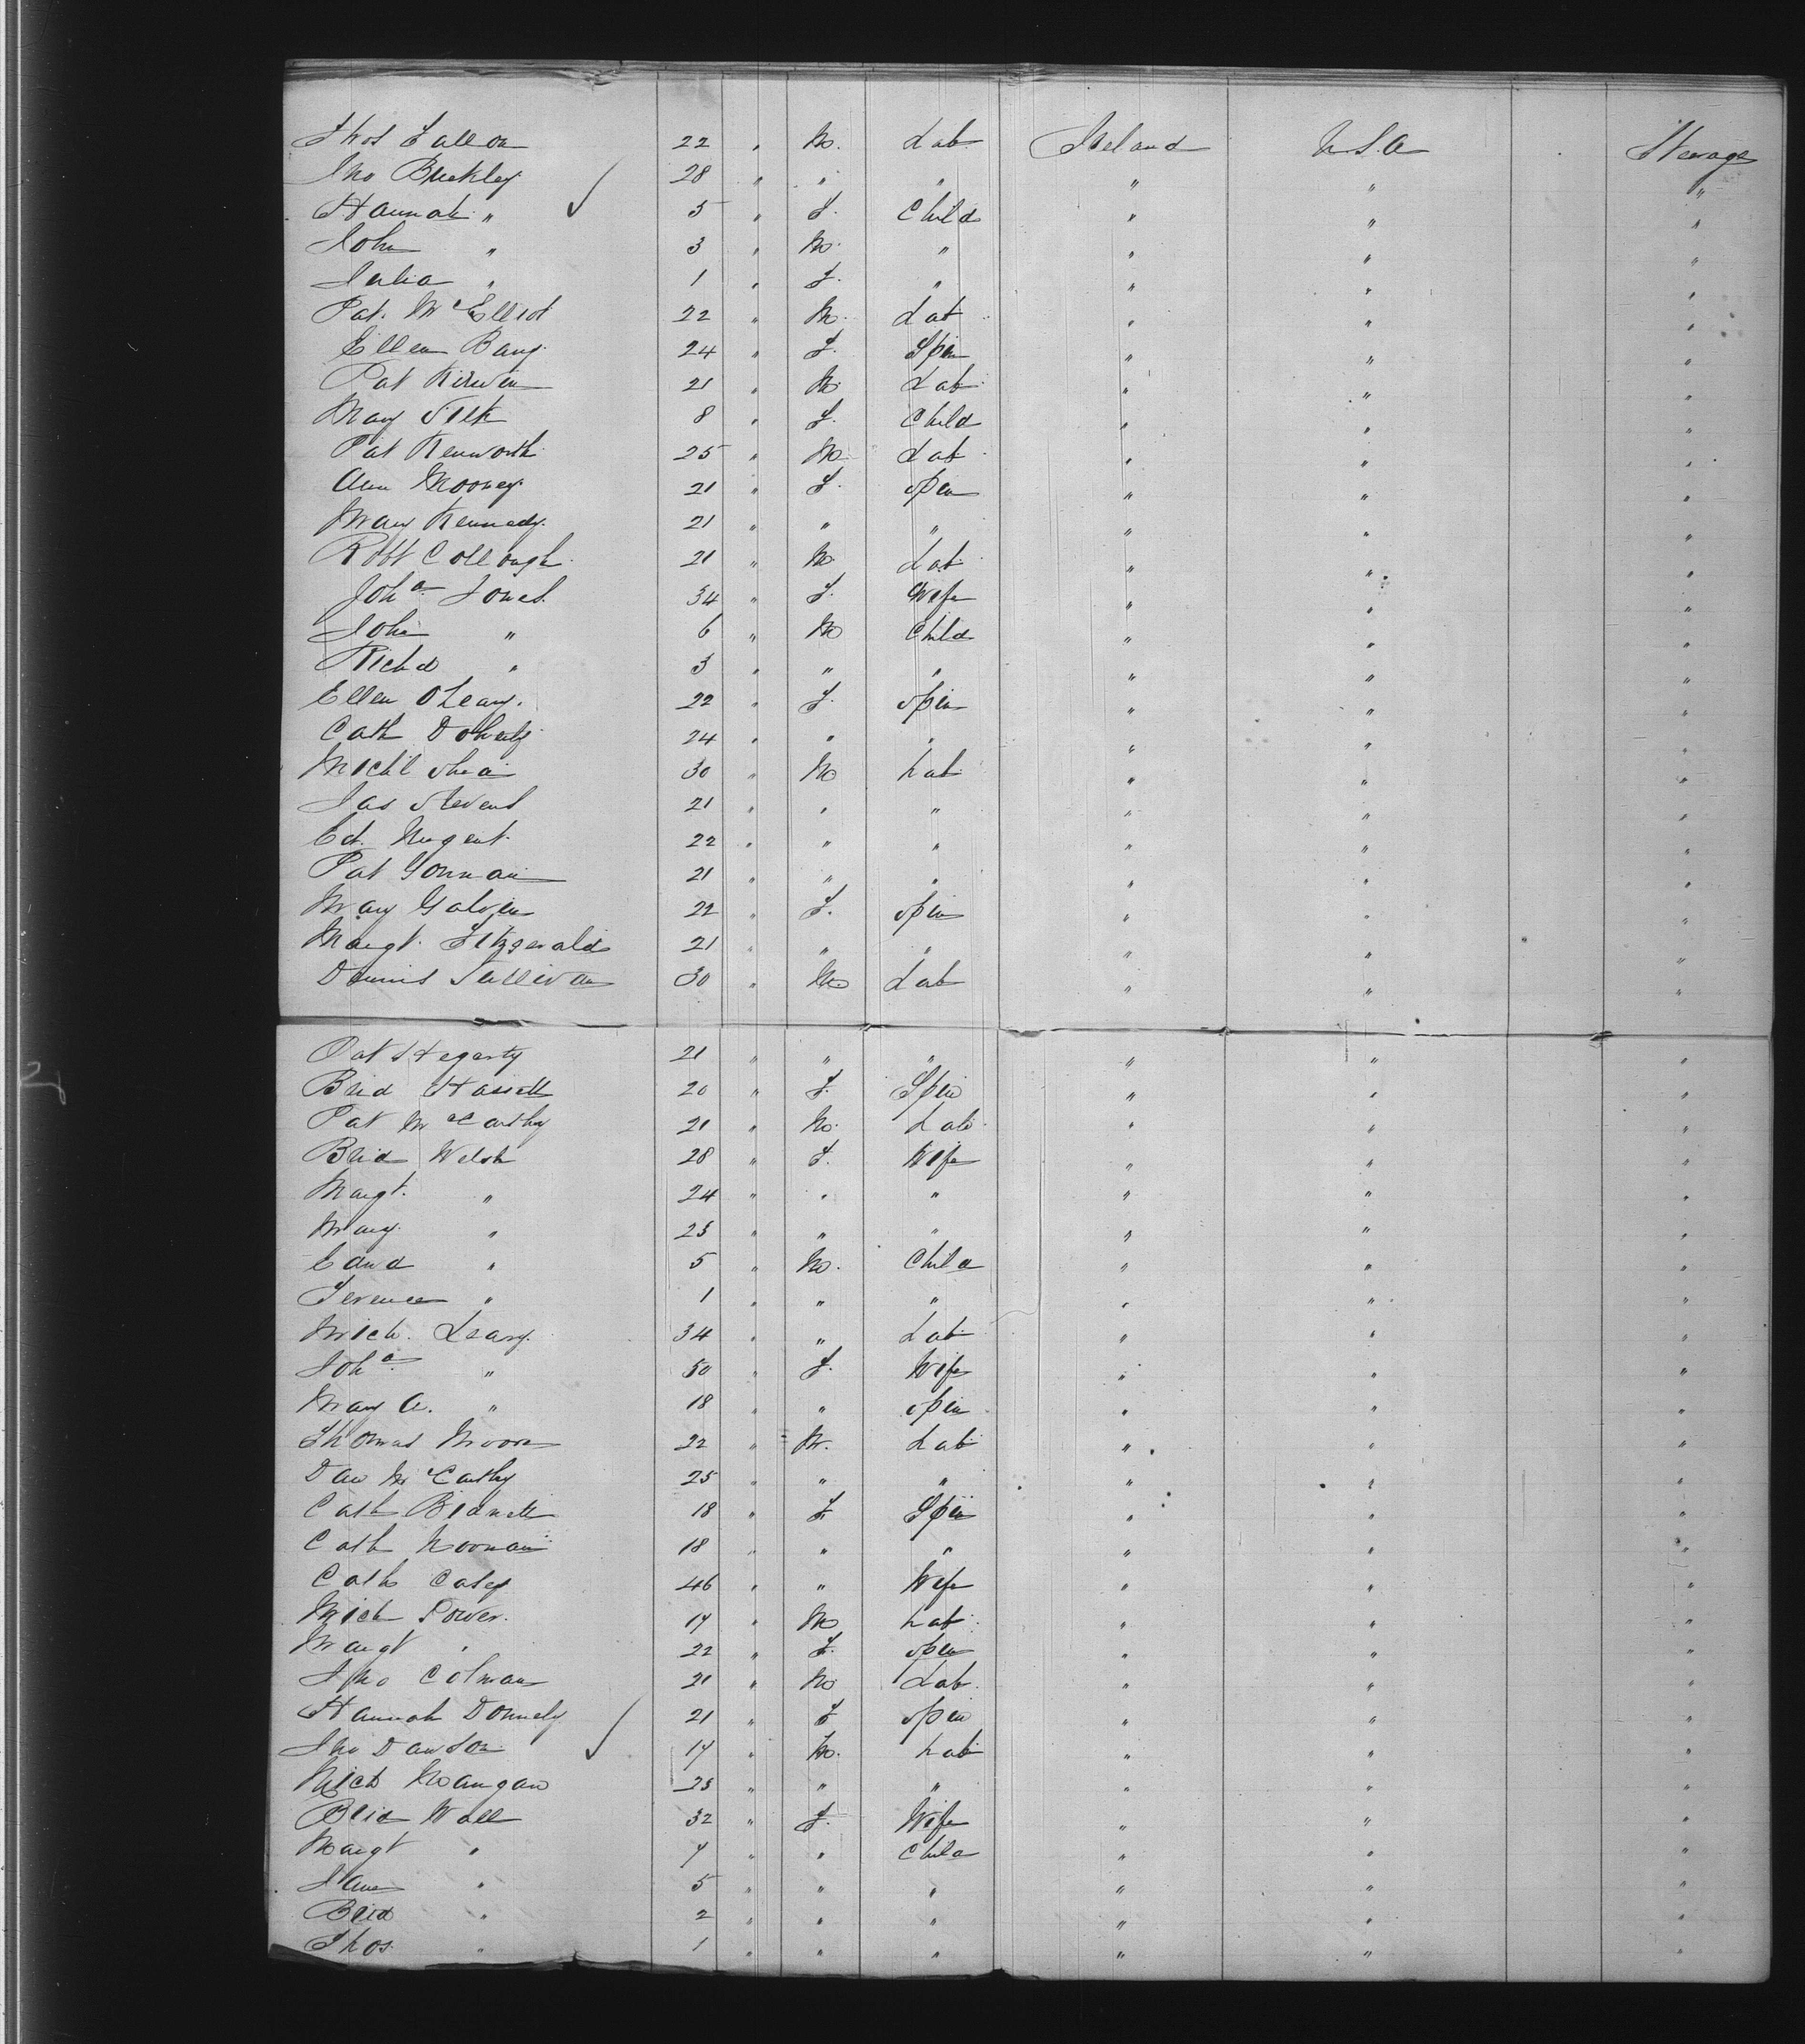 Thos Fallon 22 " M. Lab Ireland U.S.A Steerage
Jno Buckley 28 " " " " " "
Hannah " 5 " F. Child " " "
John " 3 " M. " " " "
Julia " 1 " F. " " " "
Pat. McElliot 22 " M. Lab " " "
Ellen Barry 24 " F. Spin " " "
Pat Kirwin 21 " M. Lab " " "
Mary Silk 8 " F. Child " " "
Pat Kenworth 25 " M. Lab " " "
Ann Mooney 21 " F. Spin " " "
Mary Kennedy. 21 " " " " " "
Robt Collough 21 " M. Lab " " "
Joha Jones. 34 " F. Wife " " "
John " 6 " M Child " " "
Richd " 3 " " " " " "
Ellen OLeary. 22 " F. Spin " " "
Cath Doherty 24 " " " " " "
Michl Shea 30 " M Lab " " "
Jas Stevens 21 " " " " " "
Ed. Nugent. 22 " " " " " "
Pat Gorman 21 " " " " " "
Mary Galvin 22 " F. Spin " " "
Margt. Fitzgerald 21 " " " " " "
Dennis Sullivan 30 " M. Lab " " "
Pat Hegarty 21 " " " " " "
Brid Hassett 20 " F. Spin " " "
Pat McCarthy 21 " M. Lab " " "
Brid Welsh 28 " F. Wife " " "
Margt. " 24 " " " " " "
Mary " 23 " " " " " "
Edwd " 5 " M. Child " " "
Terence " 1 " " " " " "
Mich. Leary. 34 " " Lab " " "
Joha " 50 " F. Wife " " "
Mary A. " 18 " " Spin " " "
Thomas Moore 22 " M. Lab " " "
Dan McCarthy 25 " " " " " "
Cath 18 " F Spin " " "
Cath Noonan 18 " " " " " "
Cath Casey 46 " " Wife " " "
Mich Power. 17 " M Lab " " "
Margt " 22 " F. Spin " " "
Jno Colman 21 " M Lab. " " "
Hannah Donnely 21 " F Spin " " "
Jno Dawson 17 " M. Lab " " "
Mich Mangan 25 " " " " " "
Brid Wall 32 " F. Wife " " "
Margt " 7 " " Child " " "
Jane " 5 " " " " " "
Brid " 2 " " " " " "
Thos. " 1 " " " " " "